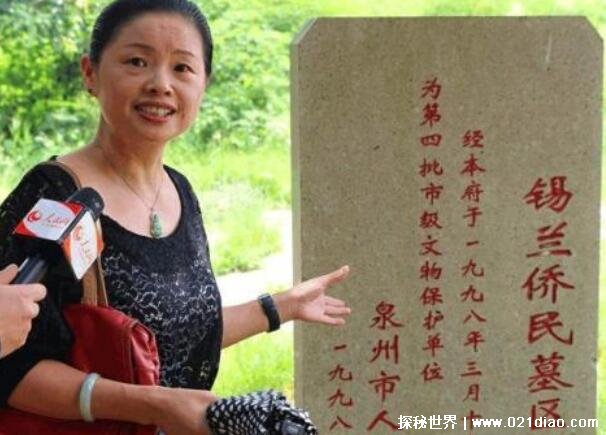 锡兰侨民墓区
经本府于一九九八年三月
为第四批市级文物保护单位
泉州市人
一九九八
人民网
探秘世界 | www.021diao.com